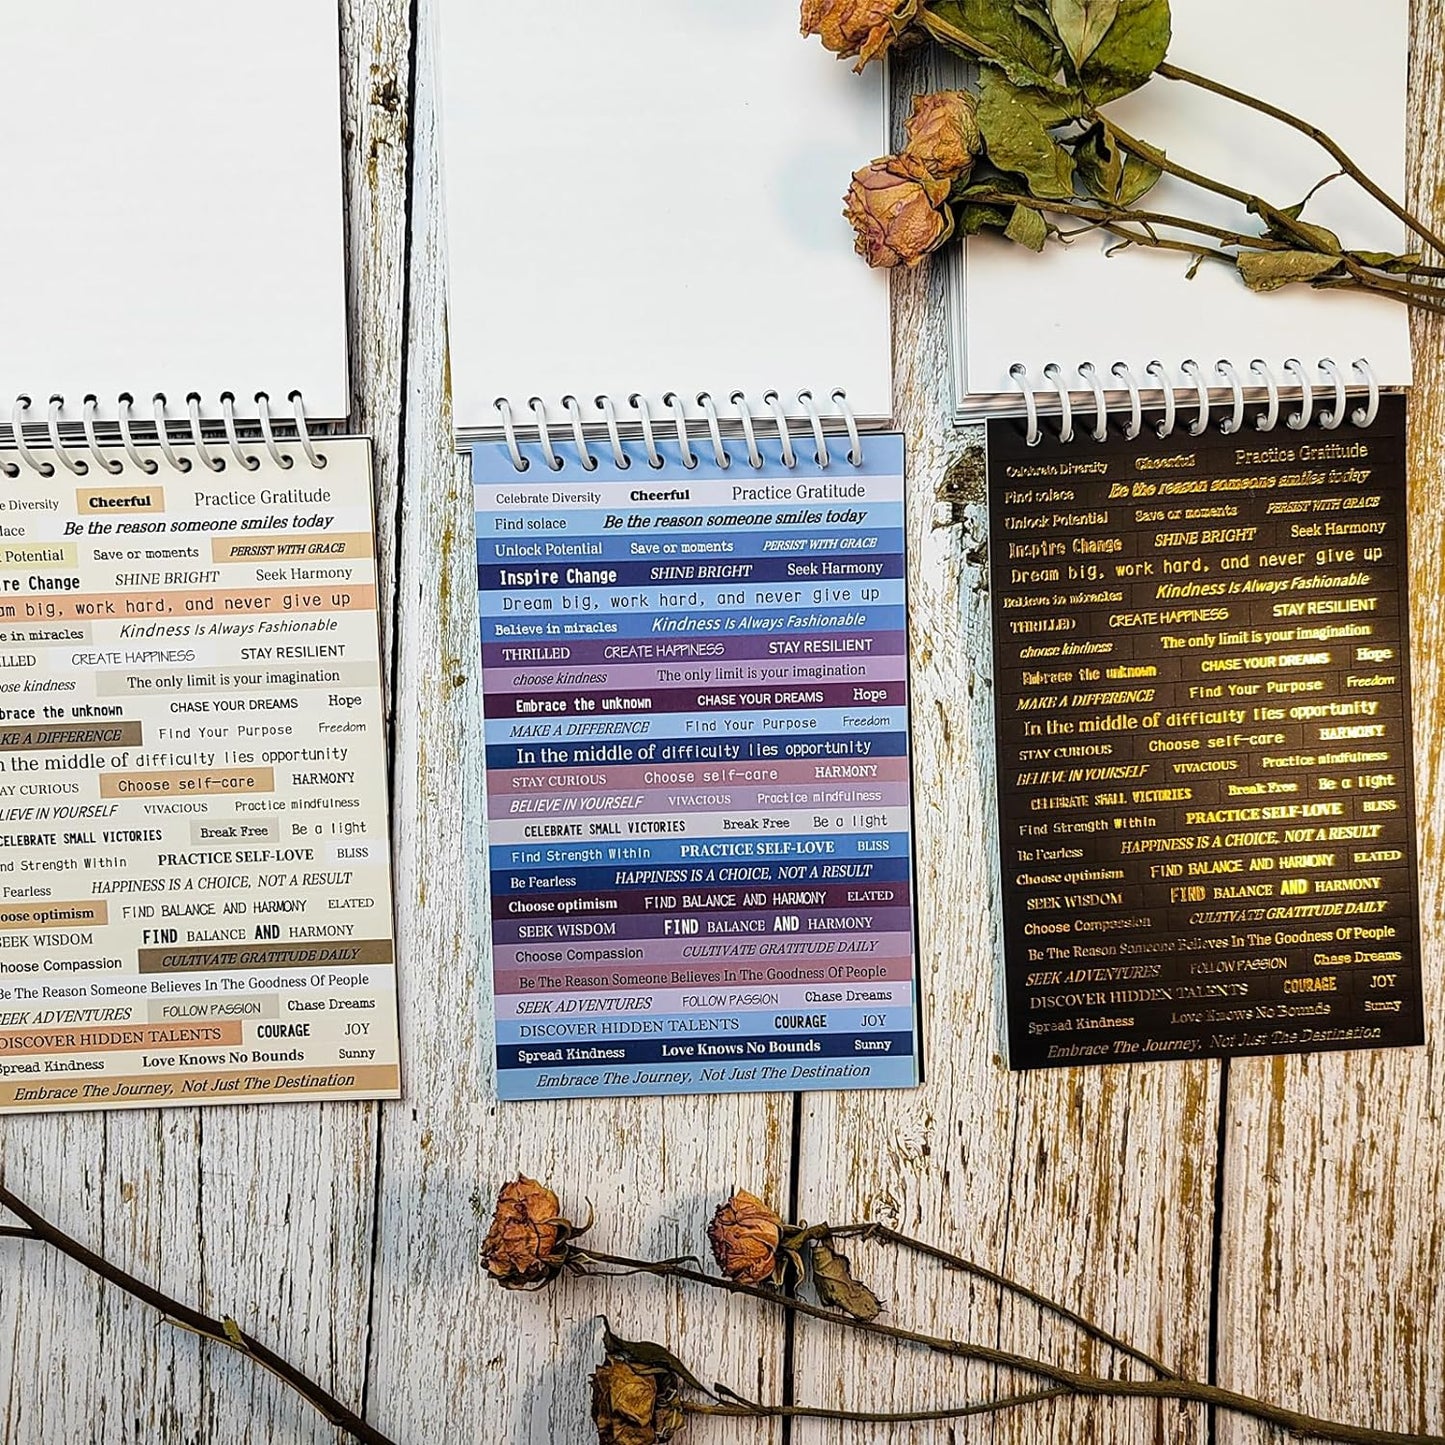 e Diversity Cheerful Practice Gratitude
lace Be the reason someone smiles today
k Potential Save or moments PERSIST WITH GRACE
re Change SHINE BRIGHT Seek Harmony
am big, work hard, and never give up
e in miracles Kindness Is Always Fashionable
LLED CREATE HAPPINESS STAY RESILIENT
ose kindness The only limit is your imagination
brace the unknown CHASE YOUR DREAMS Hope
KE A DIFFERENCE Find Your Purpose Freedom
n the middle of difficulty lies opportunity
AY CURIOUS Choose self-care HARMONY
LIEVE IN YOURSELF VIVACIOUS Practice mindfulness
CELEBRATE SMALL VICTORIES Break Free Be a light
nd Strength Within PRACTICE SELF-LOVE BLISS
Fearless HAPPINESS IS A CHOICE, NOT A RESULT
oose optimism FIND BALANCE AND HARMONY ELATED
SEEK WISDOM FIND BALANCE AND HARMONY
hoose Compassion CULTIVATE GRATITUDE DAILY
Be The Reason Someone Believes In The Goodness Of People
EEK ADVENTURES FOLLOW PASSION Chase Dreams
DISCOVER HIDDEN TALENTS COURAGE JOY
Spread Kindness Love Knows No Bounds Sunny
Embrace The Journey, Not Just The Destination
Celebrate Diversity Cheerful Practice Gratitude
Find solace Be the reason someone smiles today
Unlock Potential Save or moments PERSIST WITH GRACE
Inspire Change SHINE BRIGHT Seek Harmony
Dream big, work hard, and never give up
Believe in miracles Kindness Is Always Fashionable
THRILLED CREATE HAPPINESS STAY RESILIENT
choose kindness The only limit is your imagination
Embrace the unknown CHASE YOUR DREAMS Hope
MAKE A DIFFERENCE Find Your Purpose Freedom
In the middle of difficulty lies opportunity
STAY CURIOUS Choose self-care HARMONY
BELIEVE IN YOURSELF VIVACIOUS Practice mindfulness
CELEBRATE SMALL VICTORIES Break Free Be a light
Find Strength Within PRACTICE SELF-LOVE BLISS
Be Fearless HAPPINESS IS A CHOICE, NOT A RESULT
Choose optimism FIND BALANCE AND HARMONY ELATED
SEEK WISDOM FIND BALANCE AND HARMONY
Choose Compassion CULTIVATE GRATITUDE DAILY
Be The Reason Someone Believes In The Goodness Of People
SEEK ADVENTURES FOLLOW PASSION Chase Dreams
DISCOVER HIDDEN TALENTS COURAGE JOY
Spread Kindness Love Knows No Bounds Sunny
Embrace The Journey, Not Just The Destination
Celebrate Diversity Cheerful Practice Gratitude
Find solace Be the reason someone smiles today
Unlock Potential Save or moments PERSIST WITH GRACE
Inspire Change SHINE BRIGHT Seek Harmony
Dream big, work hard, and never give up
Believe in miracles Kindness Is Always Fashionable
THRILLED CREATE HAPPINESS STAY RESILIENT
choose kindness The only limit is your imagination
Embrace the unknown CHASE YOUR DREAMS Hope
MAKE A DIFFERENCE Find Your Purpose Freedom
In the middle of difficulty lies opportunity
STAY CURIOUS Choose self-care HARMONY
BELIEVE IN YOURSELF VIVACIOUS Practice mindfulness
CELEBRATE SMALL VICTORIES Break Free Be a light
Find Strength Within PRACTICE SELF-LOVE BLISS
Be Fearless HAPPINESS IS A CHOICE, NOT A RESULT
Choose optimism FIND BALANCE AND HARMONY ELATED
SEEK WISDOM FIND BALANCE AND HARMONY
Choose Compassion CULTIVATE GRATITUDE DAILY
Be The Reason Someone Believes In The Goodness Of People
SEEK ADVENTURES FOLLOW PASSION Chase Dreams
DISCOVER HIDDEN TALENTS COURAGE JOY
Spread Kindness Love Knows No Bounds Sunny
Embrace The Journey, Not Just The Destination